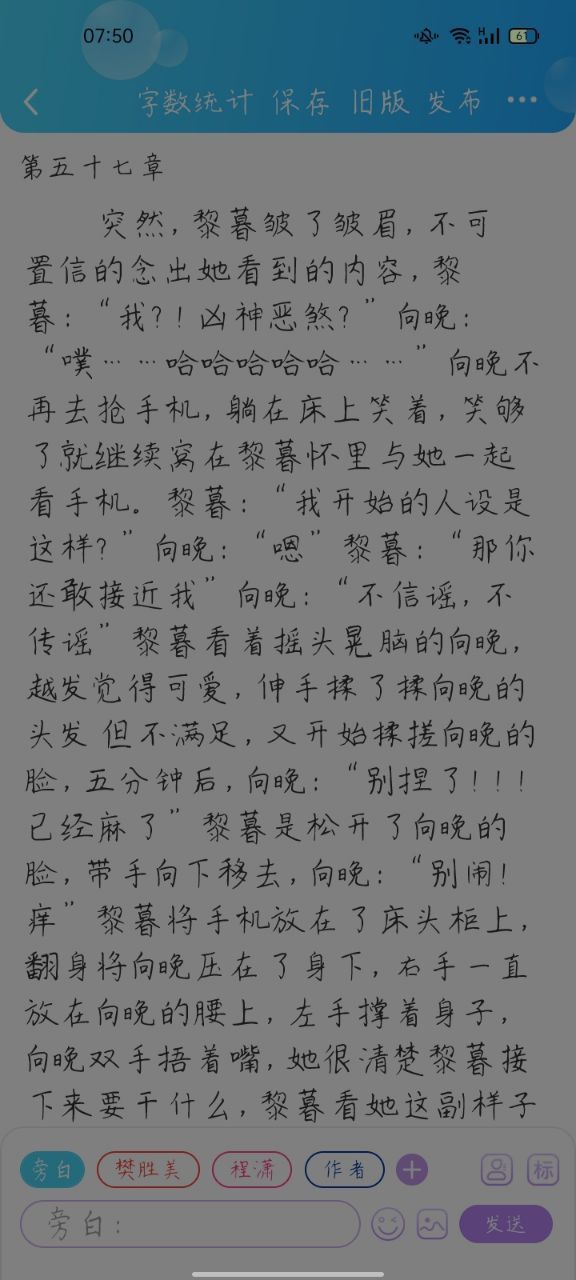 07:50
H
61
字数统计 保存 旧版 发布
第五十七章
突然,黎暮皱了皱眉,不可
置信的念出她看到的内容,黎
暮:“我?!凶神恶煞?”向晚:
“噗……哈哈哈哈哈……”向晚不
再去抢手机,躺在床上笑着,笑够
了就继续窝在黎暮怀里与她一起
看手机。黎暮:“我开始的人设是
这样?”向晚:“嗯”黎暮:“那你
还敢接近我”向晚:“不信谣,不
传谣”黎暮看着摇头晃脑的向晚,
越发觉得可爱,伸手揉了揉向晚的
头发 但不满足,又开始揉搓向晚的
脸,五分钟后,向晚:“别捏了!!!
已经麻了”黎暮是松开了向晚的
脸,带手向下移去,向晚:“别闹!
痒”黎暮将手机放在了床头柜上,
翻身将向晚压在了身下,右手一直
放在向晚的腰上,左手撑着身子,
向晚双手捂着嘴,她很清楚黎暮接
下来要干什么,黎暮看她这副样子
旁白 樊胜美 程潇 作者 标
旁白: 发送